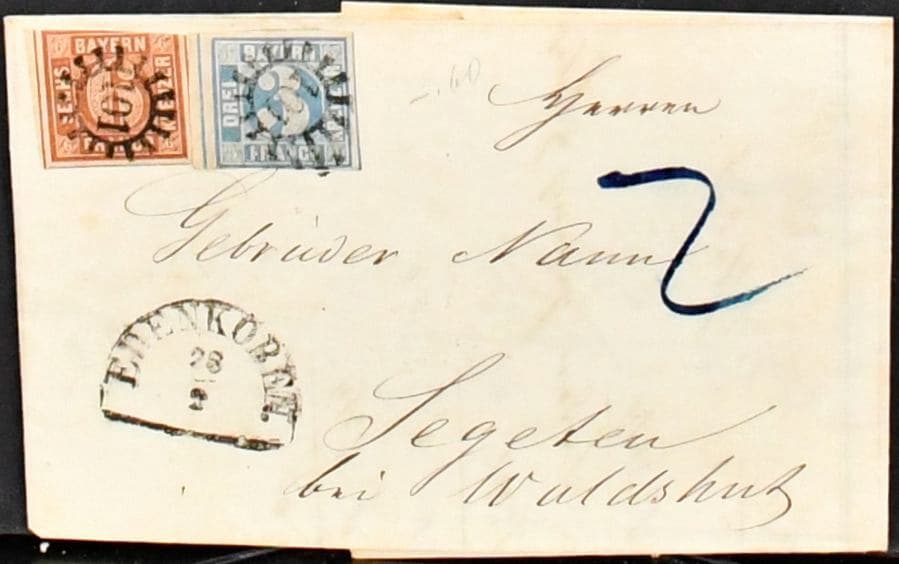 BAYERN
SECHS
KREUZER
101
BAYERN
DREI
3
FRANCO
-.60
Herren
2
Gebrüder Nann
EDENKOBEN
28
Segeten
bei Waldshut